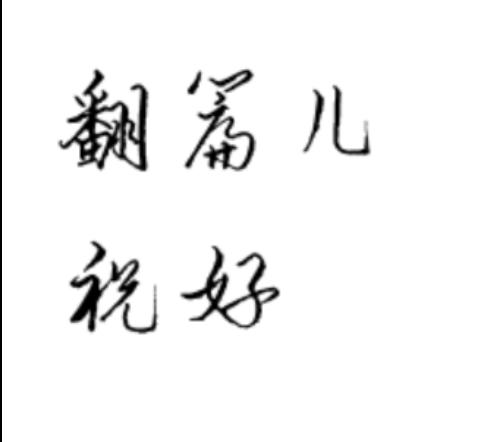 翻篇儿
祝好